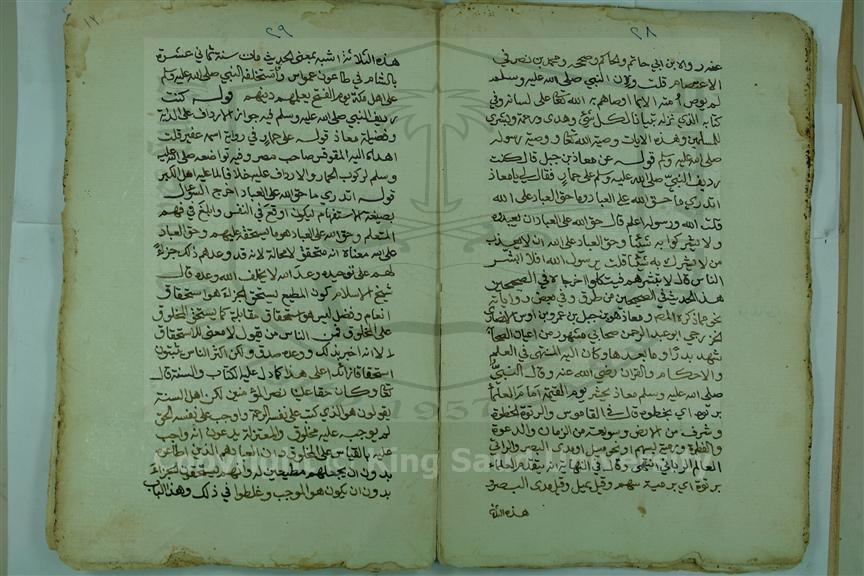 ٢٨
عفير ولابن أبي حاتم والحاكم وصححه ومحمد بن نصر في
الاعتصام قلت ولان النبي صلى الله عليه وسلم
لم يوص أمته الا بما اوصاهم به الله تعالى على لسانه وفي
كتابه الذي نزله تبيانا لكل شيء وهدى ورحمة وبشرى
للمسلمين وهذه الايات وصية الله تعالى ووصية رسوله
صلى الله عليه وسلم قوله عن معاذ بن جبل قال كنت
رديف النبي صلى الله عليه وسلم على حمار فقال لي يا معاذ
اتدري ما حق الله على العباد وما حق العباد على الله
قلت الله ورسوله اعلم قال حق الله على العباد ان يعبدوه
ولا يشركوا به شيئا وحق العباد على الله ان لا يعذب
من لا يشرك به شيئا قلت يرسول الله افلا ابشر
الناس قال لا تبشرهم فيتكلوا اخرجاه في الصحيحين
هذا الحديث في الصحيحين من طرق وفي بعض رواياته
نحو ما ذكره المص ومعاذ هو بن جبل بن عمرو بن اوس الانصاري
الخزرجي ابو عبد الرحمن صحابي مشهور من اعيان الصحابة
شهد بدرا وما بعدها وكان اليه المنتهى في العلم
والاحكام والقران رضي الله عنه وقال النبي
صلى الله عليه وسلم معاذ يحشر يوم القيمة امام العلماء
برتوة اي بخطوة قال في القاموس والرتوة الخطوة
وشرف من الارض وسويعة من الزمان والدعوة
والفطرة ورمية بسهم او نحو ميل او مدى البصر والراتي
العالم الرباني انتهى وقال في النهاية انه يتقدم العلماء
برتوة اي برمية سهم وقيل بميل وقيل مدى البصر و
هذه الثلاثة
٢٩
١٢
هذه الثلاثة اشبه بمعنى الحديث مات سنة ثماني عشرة
بالشام في طاعون عمواس واستخلفه النبي صلى الله عليه وسلم
على اهل مكة يوم الفتح يعلمهم دينهم قوله كنت
رديف النبي صلى الله عليه وسلم فيه جواز الارداف على الدابة
وفضيلة معاذ قوله على حمار في رواية اسمه عفير قلت
اهداه اليه المقوقس صاحب مصر وفيه تواضعه صلى الله عليه
وسلم لركوب الحمار والارداف عليه خلافا لما عليه اهل الكبر
قوله اتدري ما حق الله على العباد اخرج السؤال
بصيغة الاستفهام ليكون اوقع في النفس وابلغ في فهم
المتعلم وحق الله على العباد هو ما يستحقه عليهم وحق العباد
على الله معناه انه متحقق لا محالة لانه قد وعدهم ذلك جزاء
لهم على توحيده وعد الله لا يخلف الله وعده قال
شيخ الاسلام كون المطيع يستحق الجزاء هو استحقاق
انعام وفضل ليس هو استحقاق مقابلة كما يستحق المخلوق
على المخلوق فمن الناس من يقول لا معنى للاستحقاق
الا انه اخبر بذلك ووعده صدق ولكن اكثر الناس يثبتون
استحقاقا زائدا على هذا كما دل عليه الكتاب والسنة قال
تعالى وكان حقا علينا نصر المؤمنين لكن اهل السنة
يقولون هو الذي كتب على نفسه الرحمة واوجب على نفسه الحق
لم يوجبه عليه مخلوق والمعتزلة يدعون انه واجب
عليه بالقياس على المخلوق وان العباد هم الذين اطاعوه
بدون ان يجعلهم مطيعين وانهم يستحقون الجزاء
بدون ان يكون هو الموجب وغلطوا في ذلك وهذا الباب
1957
King Saud University